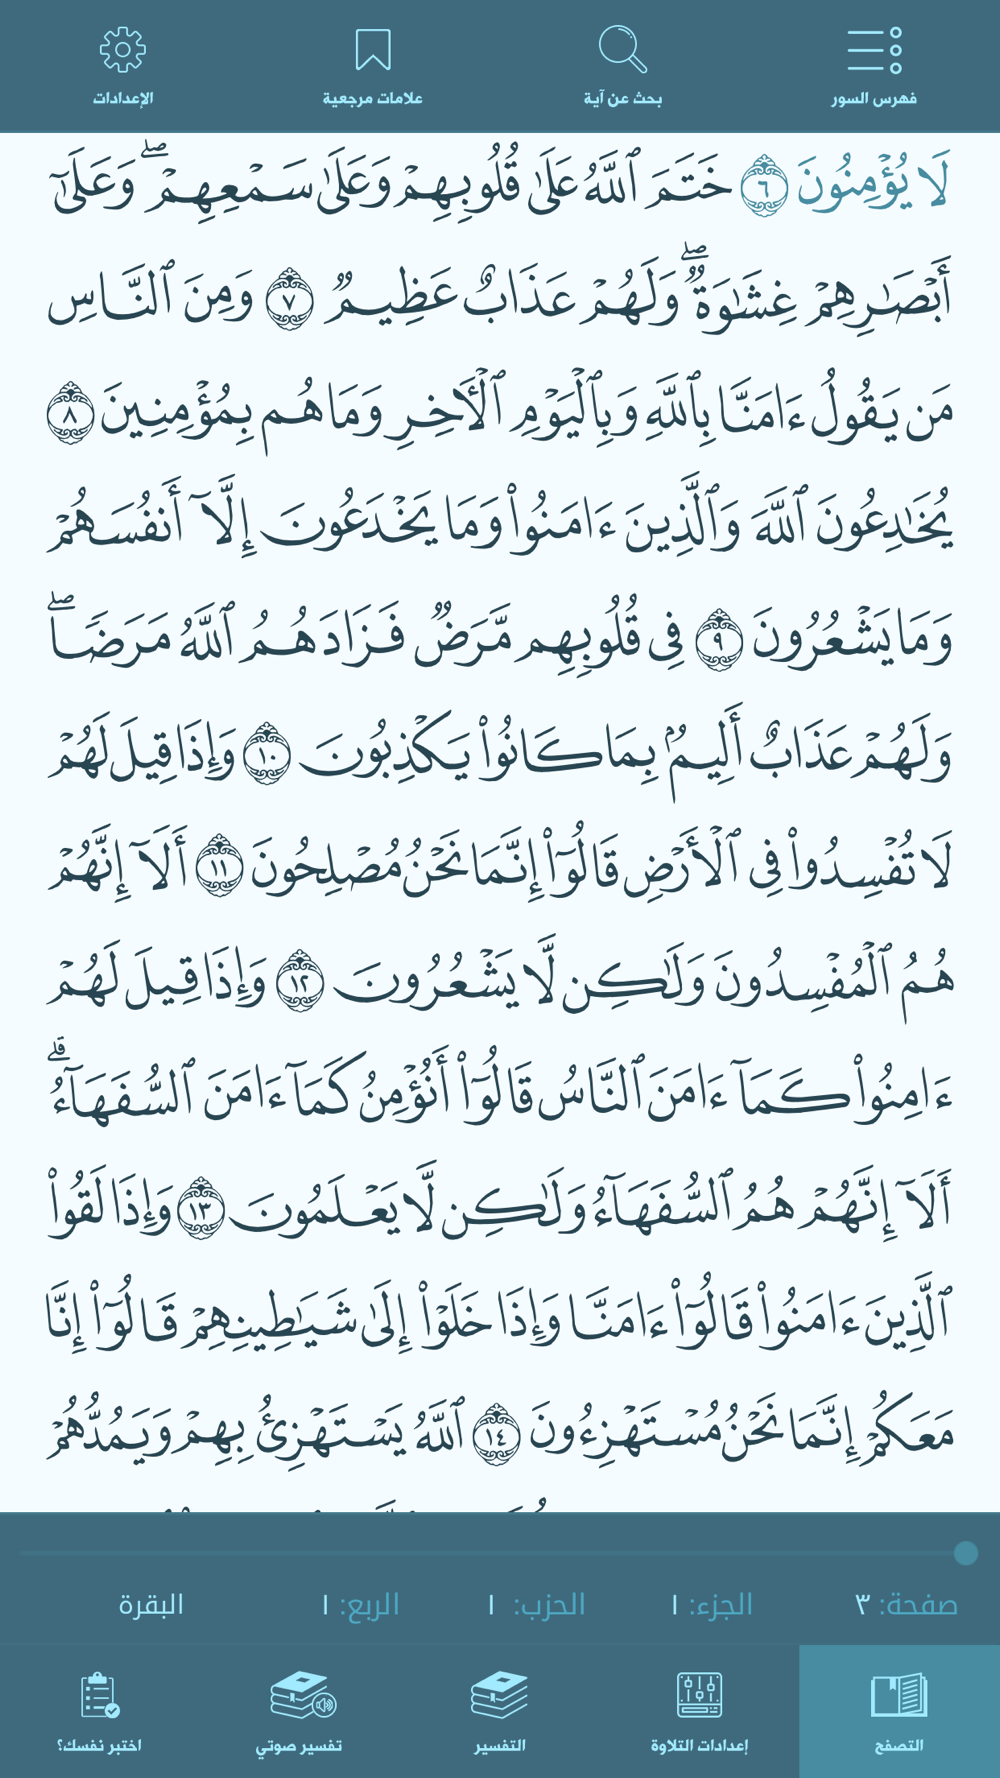 فهرس السور
بحث عن آية
علامات مرجعية
الإعدادات
لَا يُؤْمِنُونَ ٦ خَتَمَ ٱللَّهُ عَلَىٰ قُلُوبِهِمْ وَعَلَىٰ سَمْعِهِمْۖ وَعَلَىٰٓ
أَبْصَٰرِهِمْ غِشَٰوَةٌۖ وَلَهُمْ عَذَابٌ عَظِيمٌ ٧ وَمِنَ ٱلنَّاسِ
مَن يَقُولُ ءَامَنَّا بِٱللَّهِ وَبِٱلْيَوْمِ ٱلْأٓخِرِ وَمَا هُم بِمُؤْمِنِينَ ٨
يُخَٰدِعُونَ ٱللَّهَ وَٱلَّذِينَ ءَامَنُوا۟ وَمَا يَخْدَعُونَ إِلَّآ أَنفُسَهُمْ
وَمَا يَشْعُرُونَ ٩ فِى قُلُوبِهِم مَّرَضٌ فَزَادَهُمُ ٱللَّهُ مَرَضًاۖ
وَلَهُمْ عَذَابٌ أَلِيمٌۢ بِمَا كَانُوا۟ يَكْذِبُونَ ١٠ وَإِذَا قِيلَ لَهُمْ
لَا تُفْسِدُوا۟ فِى ٱلْأَرْضِ قَالُوٓا۟ إِنَّمَا نَحْنُ مُصْلِحُونَ ١١ أَلَآ إِنَّهُمْ
هُمُ ٱلْمُفْسِدُونَ وَلَٰكِن لَّا يَشْعُرُونَ ١٢ وَإِذَا قِيلَ لَهُمْ
ءَامِنُوا۟ كَمَآ ءَامَنَ ٱلنَّاسُ قَالُوٓا۟ أَنُؤْمِنُ كَمَآ ءَامَنَ ٱلسُّفَهَآءُۗ
أَلَآ إِنَّهُمْ هُمُ ٱلسُّفَهَآءُ وَلَٰكِن لَّا يَعْلَمُونَ ١٣ وَإِذَا لَقُوا۟
ٱلَّذِينَ ءَامَنُوا۟ قَالُوٓا۟ ءَامَنَّا وَإِذَا خَلَوْا۟ إِلَىٰ شَيَٰطِينِهِمْ قَالُوٓا۟ إِنَّا
مَعَكُمْ إِنَّمَا نَحْنُ مُسْتَهْزِءُونَ ١٤ ٱللَّهُ يَسْتَهْزِئُ بِهِمْ وَيَمُدُّهُمْ
صفحة: ٣ الجزء: ١ الحزب: ١ الربع: ١ البقرة
التصفح
إعدادات التلاوة
التفسير
تفسير صوتي
اختبر نفسك؟